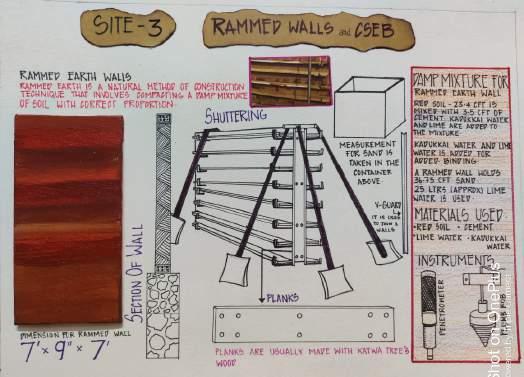 SITE-3
RAMMED WALLS and CSEB
RAMMED EARTH WALLS
RAMMED EARTH IS A NATURAL METHOD OF CONSTRUCTION
TECHNIQUE THAT INVOLVES COMPACTING A DAMP MIXTURE
OF SOIL WITH CORRECT PROPORTION.
SECTION OF WALL
DIMENSION FOR RAMMED WALL
7' x 9" x 7'
SHUTTERING
PLANKS
PLANKS ARE USUALLY MADE WITH KATWA TREE'S
WOOD
MEASUREMENT
FOR SAND IS
TAKEN IN THE
CONTAINER
ABOVE.
V-GUARD
IT IS USED
TO JOIN 2
WALLS
DAMP MIXTURE FOR
RAMMED EARTH WALL
RED SOIL - 23.4 CFT IS
MIXED WITH 3.5 CFT OF
CEMENT. KADUKKAI WATER
AND LIME ARE ADDED TO
THE MIXTURE
KADUKKAI WATER AND LIME
WATER IS ADDED FOR
ADDED BINDING.
A RAMMED WALL HOLDS
36.75 CFT SAND.
25 LTRS (APPROX) LIME
WATER IS USED.
MATERIALS USED:
•RED SOIL •CEMENT
•LIME WATER •KADUKKAI
WATER
INSTRUMENTS
PENETROMETER
PLUMB BOB
Shot on OnePlus